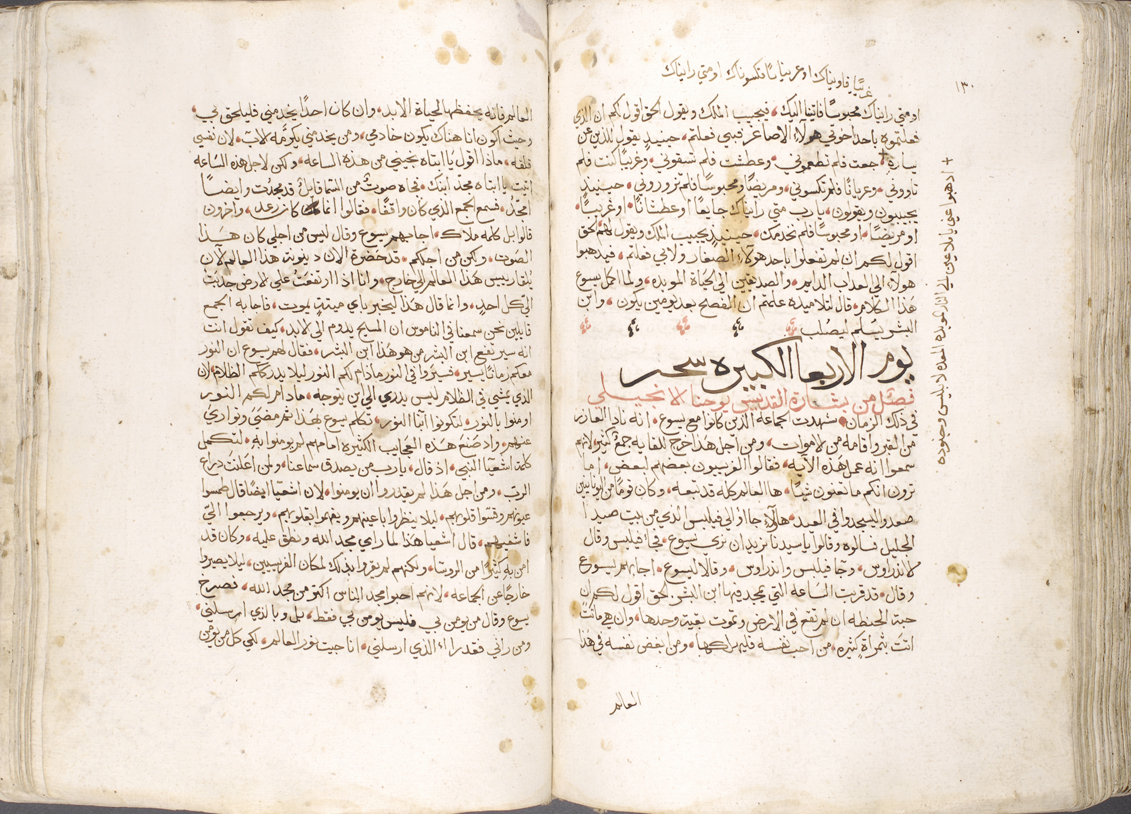 ١٣٠
غريبًا فاويناك او عريانًا فكسوناك او متى رايناك
او متى رايناك محبوسًا فاتينا اليك فيجيب الملك ويقول الحق اقول لكم ان الذي
فعلتموه باحد اخوتي هولاء الاصاغر فبي فعلتم حينيذٍ يقول للذين عن
يساره جعت فلم تطعموني وعطشت فلم تسقوني وغريبًا كنت فلم
تاووني وعريانًا فلم تكسوني ومريضًا ومحبوسًا فلم تزوروني حينيذ
يجيبون ويقولون يا رب متى رايناك جايعًا او عطشانًا او غريبًا
او مريضًا او محبوسًا فلم نخدمك حينيذٍ يجيب الملك ويقول لهم الحق
اقول لكم ان لم تفعلوا باحد هولاء الصغار ولا بي فعلتم فيذهبوا
هولاء الى العذاب الدايم والصديقين الى الحياة الموبده ولما اكمل يسوع
هذا الكلام قال لتلاميذه علمتم ان الفصح بعد يومين يكون وابن
البشر يسلم ليصلب
+ اذهبوا عني يا ملاعين الى النار الموبده المعده لابليس وجنوده
يوم الاربعا الكبيره سحر
فصل من بشارة القديس يوحنا الانجيلي
في ذلك الزمان شهدت الجماعه الذين كانوا مع يسوع انه نادا العازر
من القبر واقامه من الاموات ومن اجل هذا خرج للقايه جمع كثير لانهم
سمعوا انه عمل هذه الآيه فقالوا الفريسيون بعضهم لبعض اما
ترون انكم ما تغنون شيًا ها العالم كله قد تبعه وكان قومًا من اليونانيين
صعدوا ليسجدوا في العيد هولاء جاوا الى فيلبس الذي من بيت صيدا
الجليل فسالوه وقالوا يا سيدنا نريد ان نرى يسوع فجا فيلبس وقال
لاندراوس وجا فيلبس واندراوس وقالا ليسوع اجابهم يسوع
وقال قد قربت الساعه التي يمجد فيها ابن البشر الحق اقول لكم ان
حبة الحنطه ان لم تقع في الارض وتموت بقيت وحدها وان هي ماتت
اتت بثمراة كثيره من احب نفسه فليهلكها ومن ابغض نفسه في هذا
العالم
العالم فانه يحفظها لحياة الابد وان كان احدًا يخدمني فليلحق بي
وحيث اكون انا هناك يكون خادمي ومن يخدمني يكرمه الاب لان نفسي
قلقه ماذا اقول يا ابتاه نجيني من هذه الساعه ولكن لاجل هذه الساعه
اتيت يا ابتاه مجد ابنك فجاه صوتٌ من السما قايلًا قد مجدت وايضًا
امجدُ فسمع الجمع الذي كان واقفًا فقالوا انما كان رعد واخرون
قالوا بل كلمه ملاك اجابهم يسوع وقال ليس من اجلي كان هذا
الصوت ولكن من اجلكم قد حضرة الان دينونة هذا العالم الان
يلقا رييس هذا العالم الى خارج وانا اذا ارتفعت على الارض جذبت
الي كل احدٍ وانما قال هذا ليخبر باي ميتةٍ يموت فاجابه الجمع
قايلين نحن سمعنا في الناموس ان المسيح يدوم الى الابد كيف تقول انت
انه سيرتفع ابن البشر من هو هذا ابن البشر فقال لهم يسوع ان النور
معكم زمانًا يسير فسيروا في النور ما دام لكم النور ليلا يدرككم الظلام لان
الذي يمشي في الظلام ليس يدري الى اين يتوجه ما دام لكم النور
اومنوا بالنور لتكونوا ابنا النور تكلم يسوع بهذا ثم مضى وتوارى
عنهم واذ صنع هذه العجايب الكثيره امامهم لم يومنوا به لتكمل
كلمة اشعيا النبي اذ قال يا رب من يصدق سماعنا ولمن اعلنت ذراع
الرب ومن اجل هذا لم يقدروا ان يومنوا لان اشعيا ايضًا قال طمسوا
عيونهم وقسوا قلوبهم ليلا ينظروا باعينهم ويفهموا بقلوبهم ويرجعوا الي
فاشفيهم قال اشعيا هذا لما راى مجد الله ونطق عليه وكان قد
امن به كثيرًا من الروسا ولكنهم لم يقروا بذلك لمكان الفريسيين ليلا يصيروا
خارجًا عن الجماعه لانهم احبوا مجد الناس اكثر من مجد الله فصرخ
يسوع وقال من يومن بي فليس يومن بي فقط بل وبالذي ارسلني
ومن راني فقد را الذي ارسلني انا جيت نور العالم لكي كل من يومن